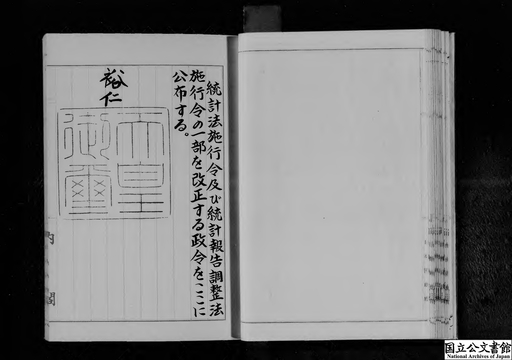 統計法施行令及び統計報告調整法
施行令の一部を改正する政令をここに
公布する。
裕仁
天皇
御璽
内閣
国立公文書館
National Archives of Japan